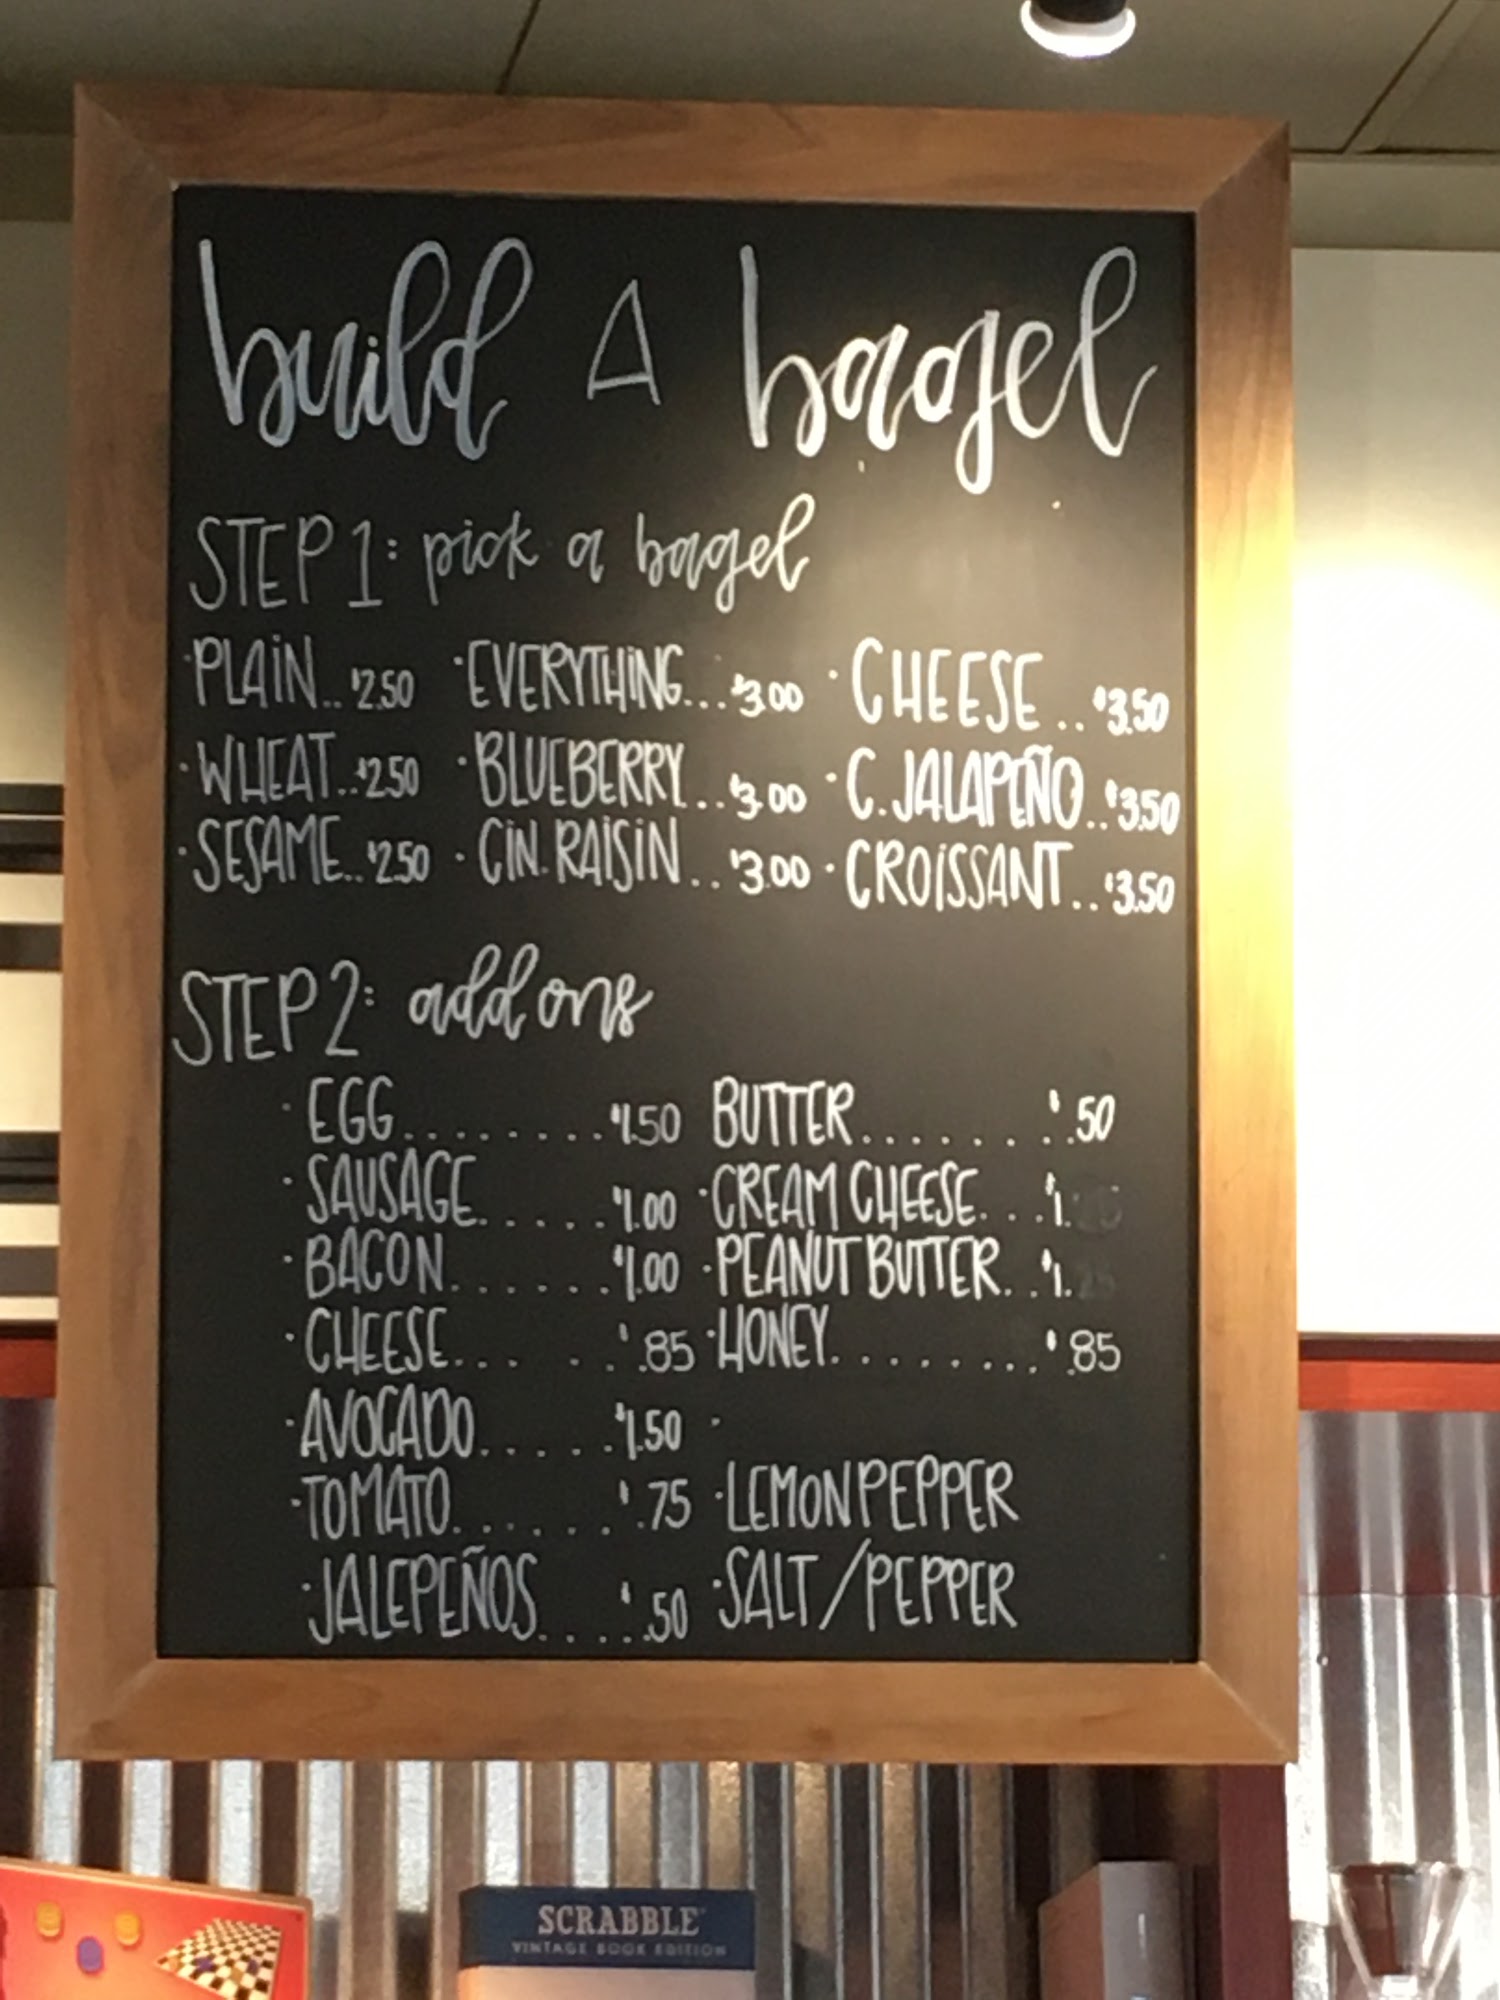 build A bagel
STEP 1: pick a bagel
· PLAIN.. $2.50 · EVERYTHING... $3.00 · CHEESE .. $3.50
· WHEAT.. $2.50 · BLUEBERRY... $3.00 · C. JALAPEÑO.. $3.50
· SESAME.. $2.50 · CIN. RAISIN... $3.00 · CROISSANT.. $3.50
STEP 2: add ons
· EGG......... $1.50 BUTTER........ $.50
· SAUSAGE...... $1.00 · CREAM CHEESE... $1.
· BACON....... $1.00 · PEANUT BUTTER... $1.
· CHEESE..... $.85 · HONEY......... $.85
· AVOCADO..... $1.50 ·
· TOMATO....... $.75 · LEMON PEPPER
· JALEPEÑOS..... $.50 · SALT/PEPPER
SCRABBLE
VINTAGE BOOK EDITION